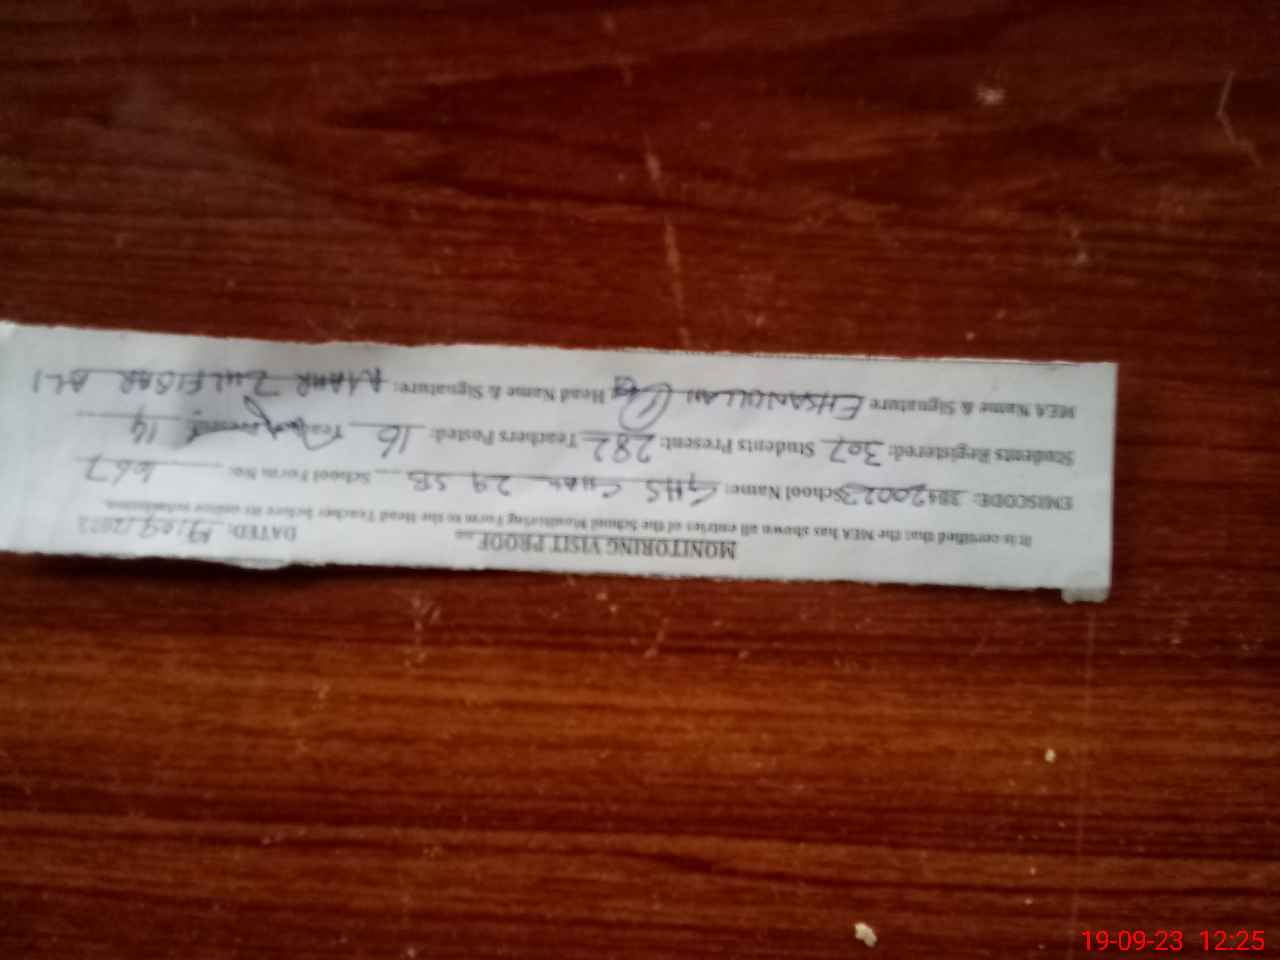 MONITORING VISIT PROOF
DATED: 19/09/2023
It is certified that the MEA has shown all entries of the School Monitoring Form to the Head Teacher before its online submission.
EMISCODE: 38420023 School Name: GHS CHAK 29 SB School Form No: 667
Students Registered: 307 Students Present: 282 Teachers Posted: 16 Teachers present: 14
MEA Name & Signature EHSANULLAH Head Name & Signature: ZULFIQAR ALI
19-09-23 12:25